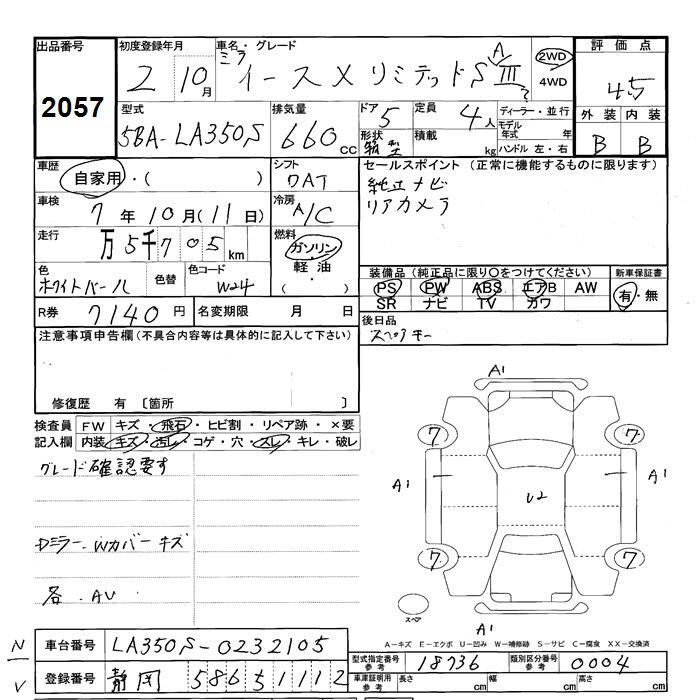 出品番号 初度登録年月 車名・グレード 評価点
2057
2 年 10 月 ミライース X リミテッド SAⅢ 2WD 4WD 4.5
型式 排気量 ドア 定員 ディーラー・並行 外装 内装
5BA-LA350S 660 cc 5 4人 モデル年式 年 B B
形状 箱型 積載 kg ハンドル 左・右
車歴 自家用・( ) シフト 7AT セールスポイント (正常に機能するものに限ります)
純正ナビ
リアカメラ
車検 7 年 10 月 (11 日) 冷房 A/C
走行 万 5千 705 km 燃料 ガソリン・軽油・( )
色 ホワイトパール 色替 色コード W24
装備品 (純正品に限り〇をつけてください) 新車保証書
PS PW ABS エアB AW 有・無
SR ナビ TV カワ
R券 7140 円 名変期限 月 日 後日品
スペアキー
注意事項申告欄 (不具合内容等は具体的に記入して下さい)
修復歴 有 〔箇所 〕
検査員記入欄 FW キズ・飛石・ヒビ割・リペア跡・×要
内装 キズ・汚レ・コゲ・穴・スレ・キレ・破レ
グレード確認要す
Dミラー Wカバー キズ
各 AU
A1
7 7
A1 U2 A1
7 7
スペア
A1
A－キズ E－エクボ U－凹み W－補修跡 S－サビ C－腐食 XX－交換済
N/V
車台番号 LA350S-0232105
登録番号 静岡 586 5 1112
型式指定番号 参考 18736 類別区分番号 参考 0004
車庫証明用 参考 長さ cm 幅 cm 高さ cm